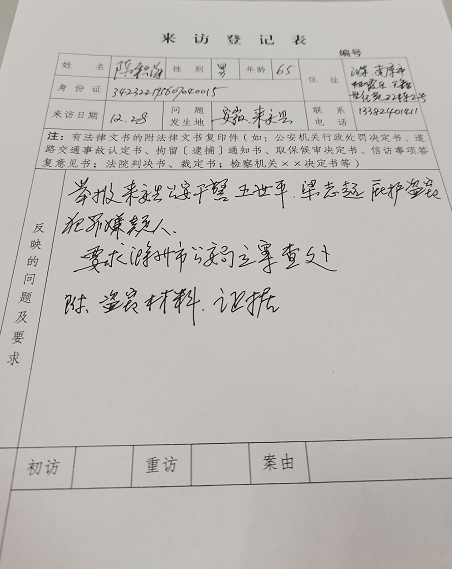 来访登记表
编号
姓名 陈积海 性别 男 年龄 65 住址 江苏南京市
身份证 342322195607040015
来访日期 12.28 问题发生地 安徽.来安县 联系电话 13382401411
注：有法律文书的附法律文书复印件（如：公安机关行政处罚决定书、道
路交通事故认定书、拘留〔逮捕〕通知书、取保候审决定书、信访事项答
复意见书；法院判决书、裁定书；检察机关××决定书等）
反映的问题及要求
举报来安县公安干警王世平.梁志远庇护盗窃
犯罪嫌疑人.
要求滁州市公安局立案查处
附.盗窃材料.证据
初访 重访 案由